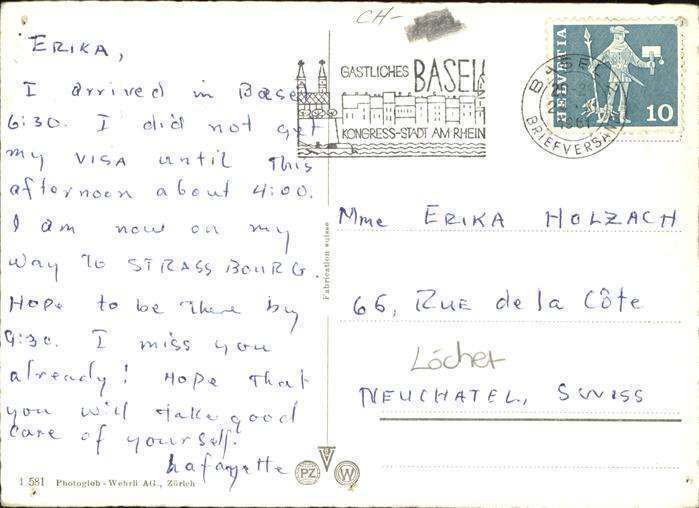 ERIKA,
I arrived in Basel
6:30. I did not get
my VISA until this
afternoon about 4:00.
I am now on my
way to STRASSBOURG.
Hope to be there by
9:30. I miss you
already! Hope that
you will take good
care of yourself.
Lafayette
1 581 Photoglob - Wehrli AG., Zürich
Fabrication suisse
PZ
W
CH-
GASTLICHES BASEL
KONGRESS-STADT AM RHEIN
BASEL 2
BRIEFVERSAND
HELVETIA
10
Mme ERIKA HOLZACH
66, RUE de la Côte
Löcher
NEUCHATEL, SWISS